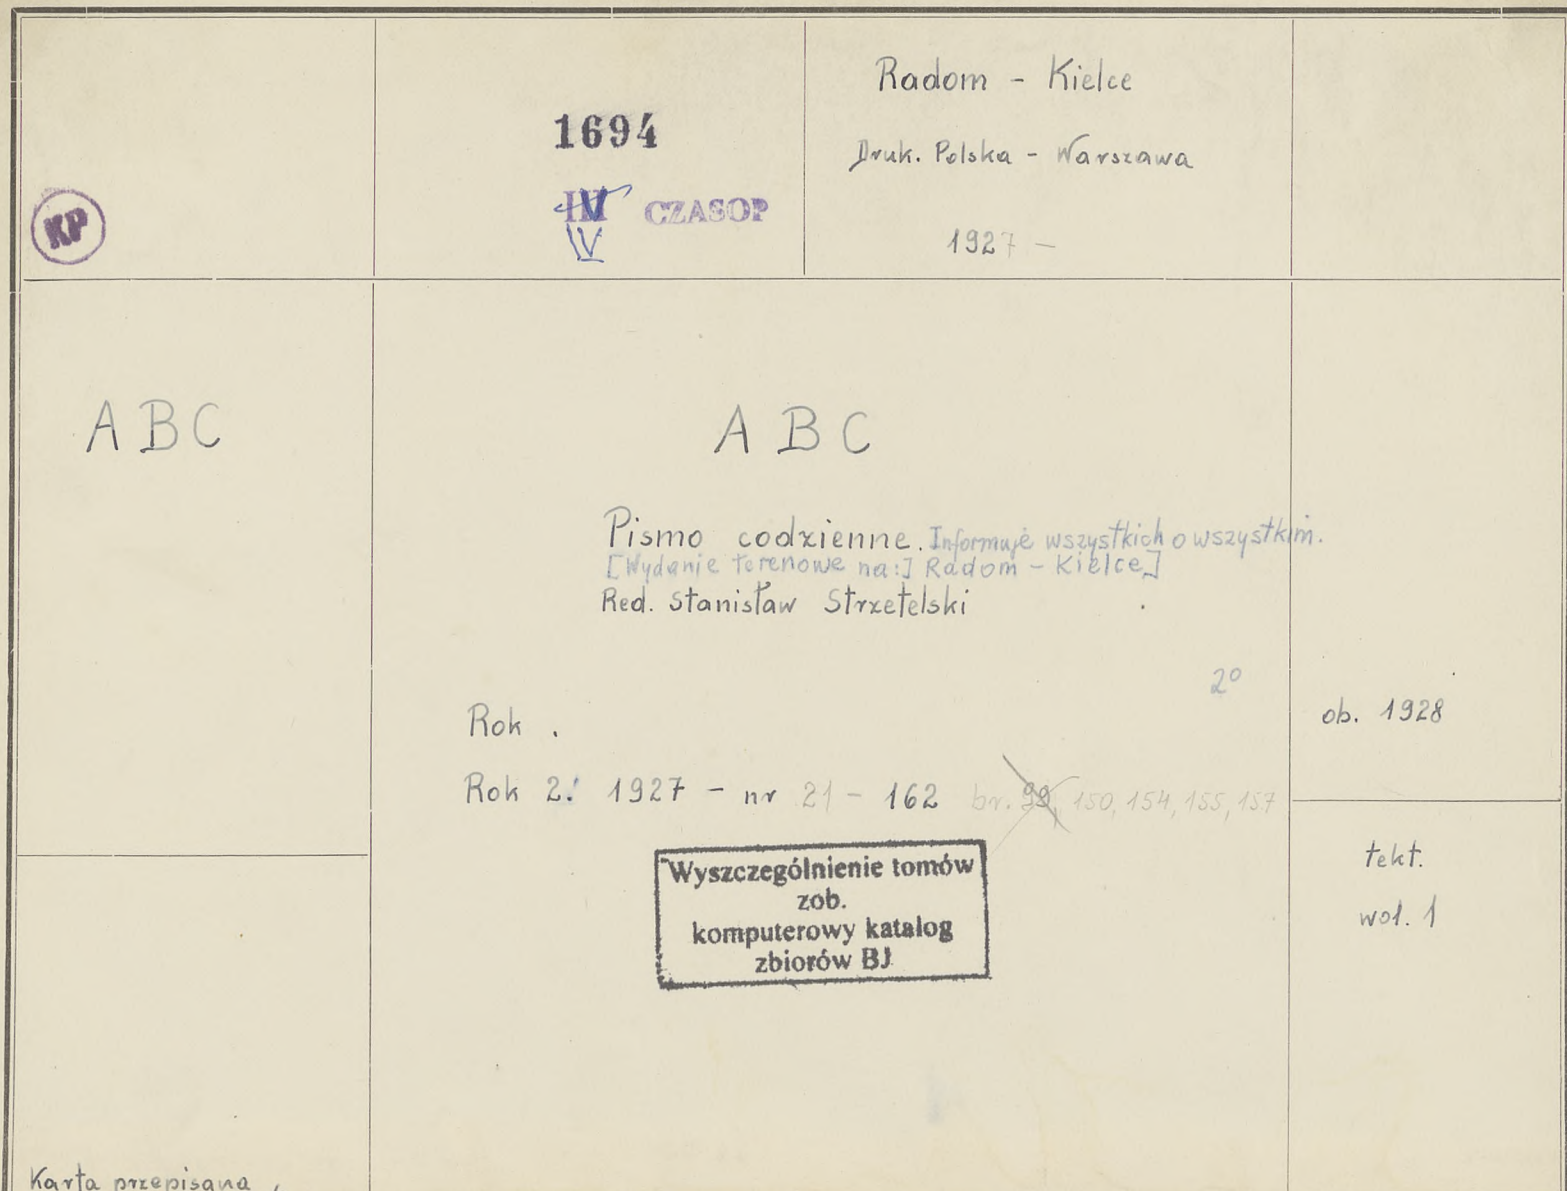 Radom - Kielce
1694
Druk. Polska - Warszawa
KP
IV CZASOP
IV
1927 -
ABC
ABC
Pismo codzienne. Informuje wszystkich o wszystkim.
[Wydanie terenowe na:] Radom - Kielce]
Red. Stanisław Strzetelski
2°
Rok .
ob. 1928
Rok 2. 1927 - nr 21 - 162 br. 99, 150, 154, 155, 157
Wyszczególnienie tomów
zob.
komputerowy katalog
zbiorów BJ
tekt.
wol. 1
Karta przepisana,